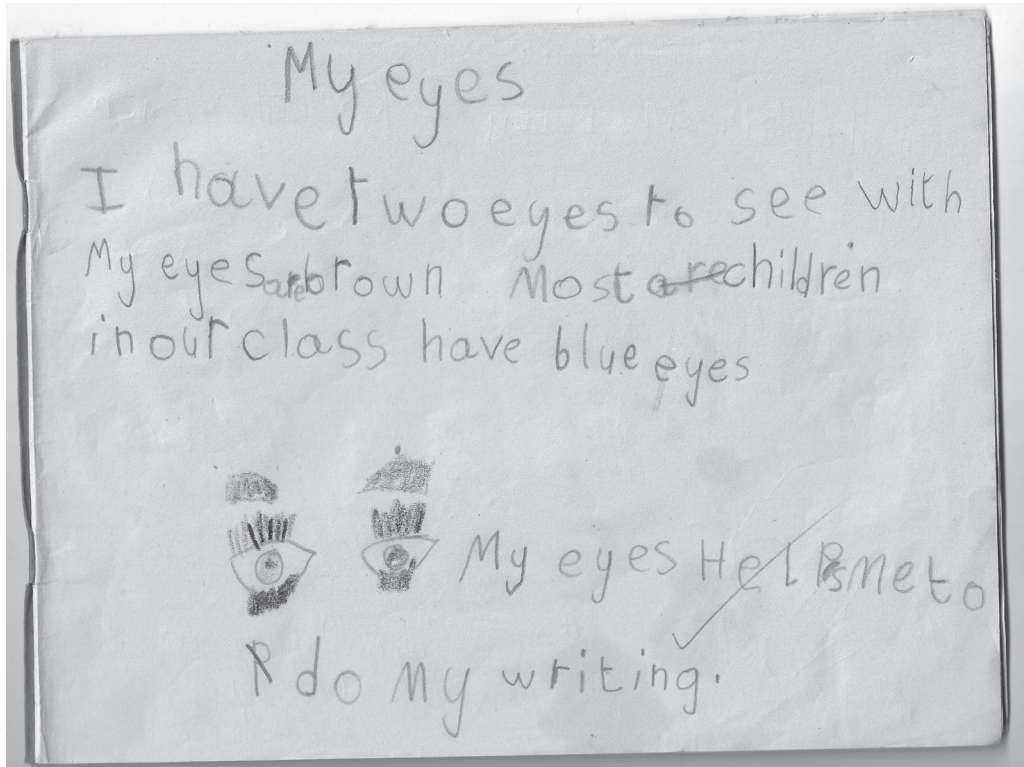 My eyes
I have two eyes to see with
My eyes are brown Most are children
in our class have blue eyes
My eyes HelPs me to
R do my writing.